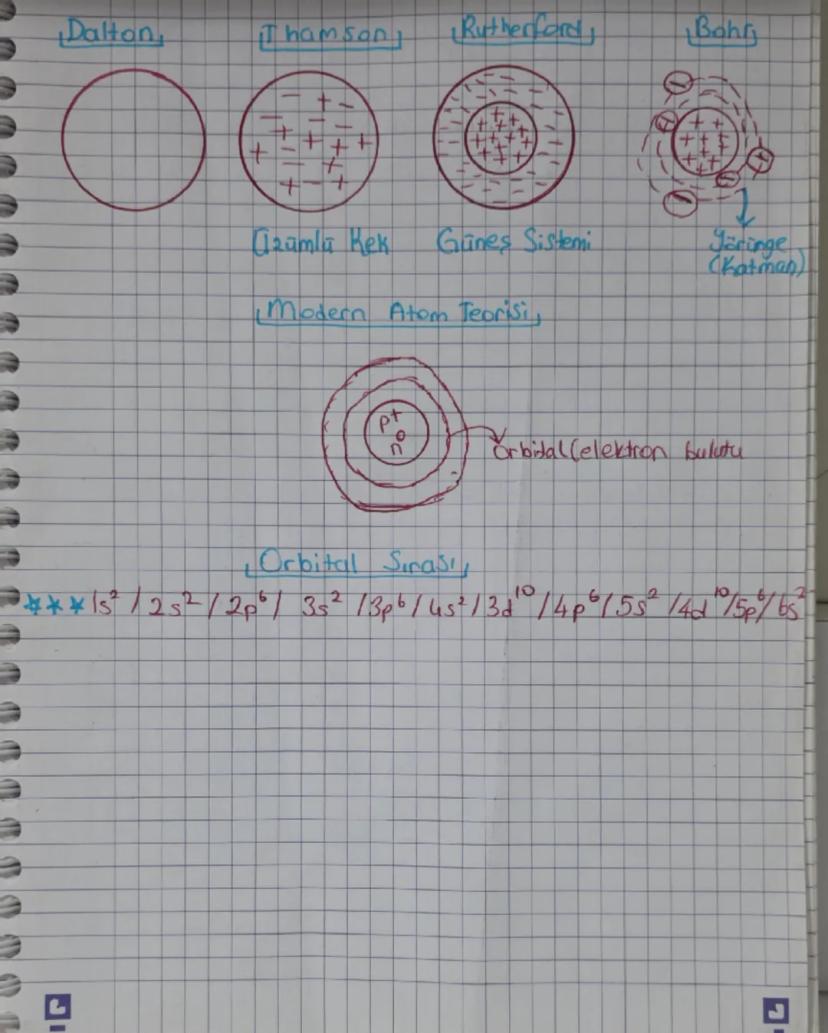 Dalton Thamson Rutherford Bohr
Üzümlü Kek Güneş Sistemi Yörünge
(Katman)
Modern Atom Teorisi
p+
n°
Orbital(elektron bulutu
Orbital Sırası
*** 1s² / 2s² / 2p⁶ / 3s² / 3p⁶ / 4s² / 3d¹⁰ / 4p⁶ / 5s² / 4d¹⁰ / 5p⁶ / 6s²